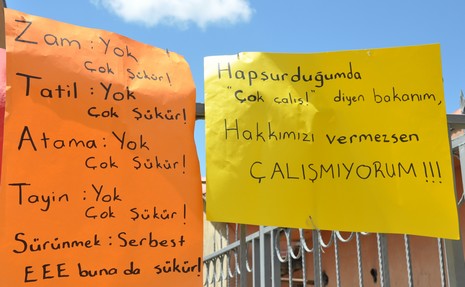 Zam : Yok
Çok Şükür!
Tatil : Yok
Çok Şükür!
Atama : Yok
Çok Şükür!
Tayin : Yok
Çok Şükür!
Sürünmek : Serbest
EEE buna da şükür!
Hapşurduğumda
"Çok calış!" diyen bakanım,
Hakkımızı vermezsen
ÇALIŞMIYORUM!!!